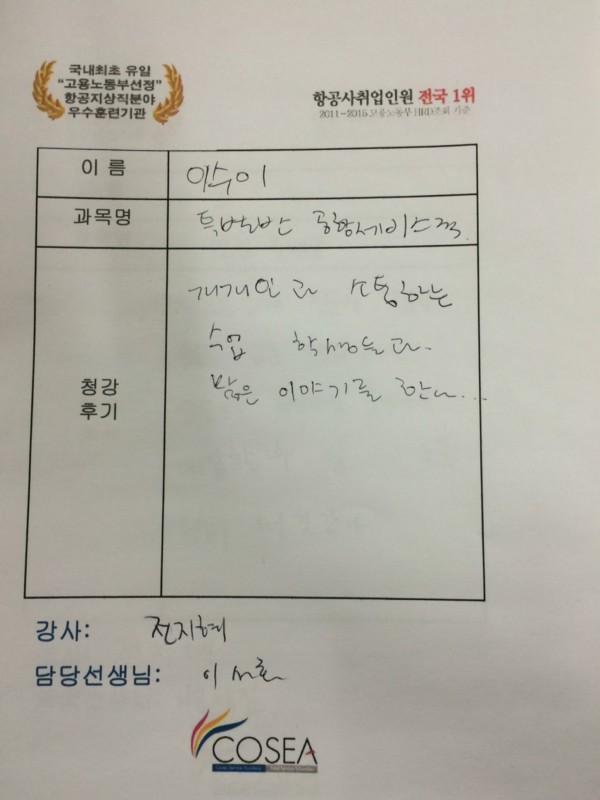 국내최초 유일
"고용노동부선정"
항공지상직분야
우수훈련기관
항공사취업인원 전국 1위
2011~2015 고용노동부 HRD조회 기준
이 름
이수이
과목명
특별반 공항서비스직
청강
후기
개개인과 소통하는
수업 학생들과
많은 이야기를 한다...
강사: 전지혜
담당선생님: 이서호
COSEA